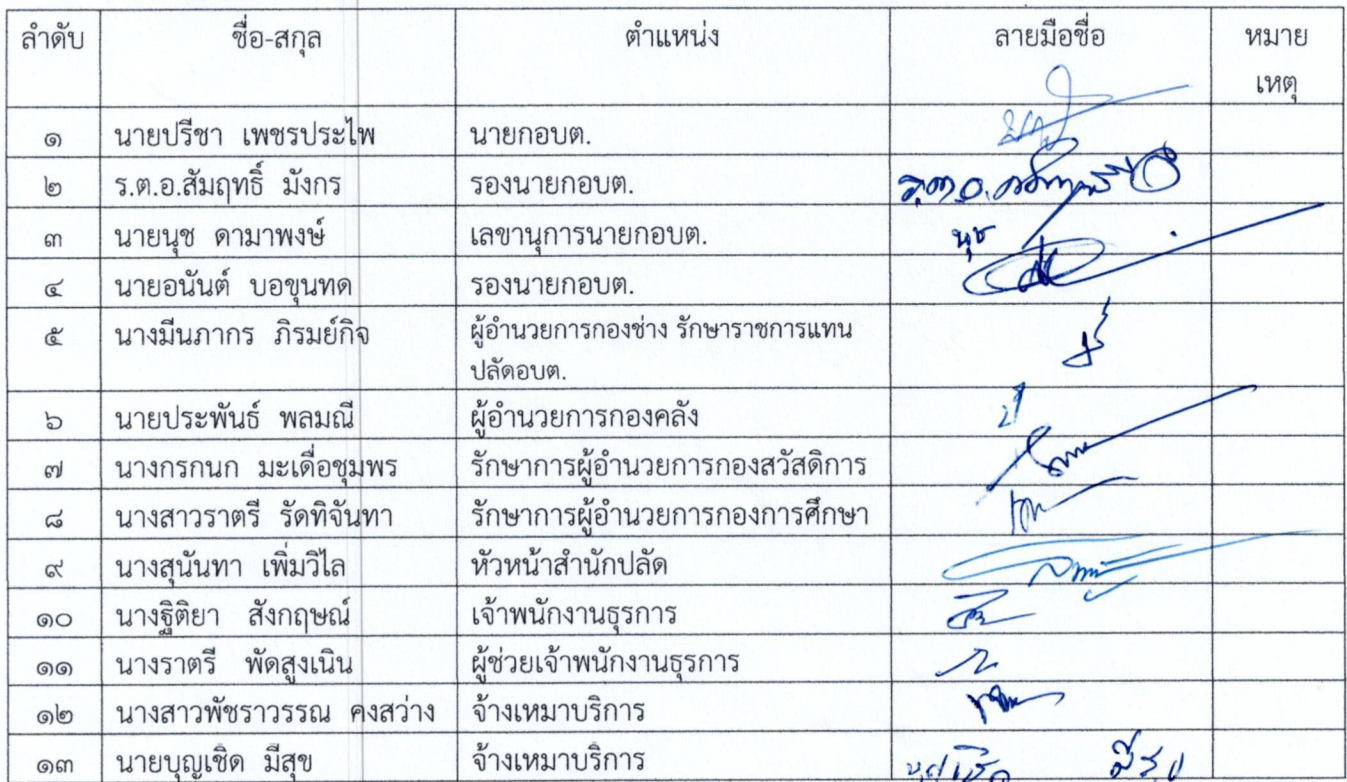 ลำดับ ชื่อ-สกุล ตำแหน่ง ลายมือชื่อ หมาย
เหตุ
๑ นายปรีชา เพชรประไพ นายกอบต.
๒ ร.ต.อ.สัมฤทธิ์ มังกร รองนายกอบต. ร.ต.อ.
๓ นายนุช ดามาพงษ์ เลขานุการนายกอบต. นุช
๔ นายอนันต์ บอขุนทด รองนายกอบต.
๕ นางมีนภากร ภิรมย์กิจ ผู้อำนวยการกองช่าง รักษาราชการแทน
ปลัดอบต.
๖ นายประพันธ์ พลมณี ผู้อำนวยการกองคลัง
๗ นางกรกนก มะเดื่อชุมพร รักษาการผู้อำนวยการกองสวัสดิการ
๘ นางสาวราตรี รัดทิจันทา รักษาการผู้อำนวยการกองการศึกษา
๙ นางสุนันทา เพิ่มวิไล หัวหน้าสำนักปลัด
๑๐ นางฐิติยา สังกฤษณ์ เจ้าพนักงานธุรการ
๑๑ นางราตรี พัดสูงเนิน ผู้ช่วยเจ้าพนักงานธุรการ
๑๒ นางสาวพัชราวรรณ คงสว่าง จ้างเหมาบริการ
๑๓ นายบุญเชิด มีสุข จ้างเหมาบริการ บุญเชิด มีสุข